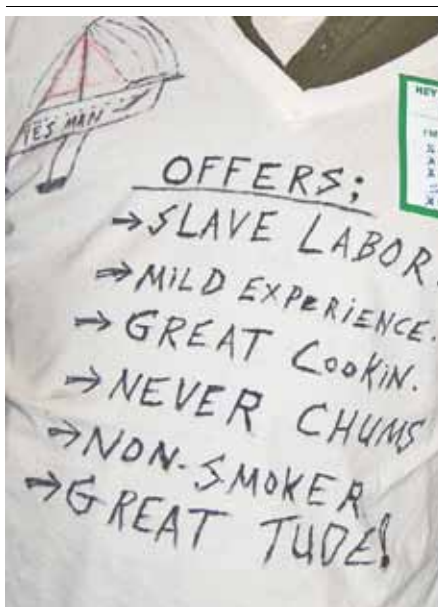 YES MAN
HEY
OFFERS;
→SLAVE LABOR.
→MILD EXPERIENCE.
→GREAT COOKIN.
→NEVER CHUMS
→NON-SMOKER
→GREAT TUDE!